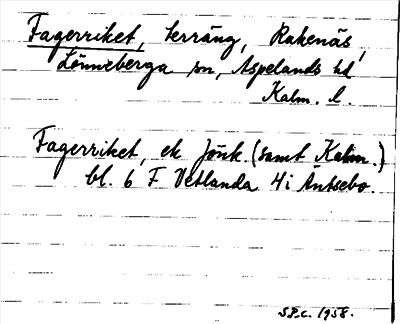 Fagerriket, terräng, Rakenäs,
Lönneberga sn, Aspelands hd
Kalm. l.
Fagerriket, ek jönk. (samt Kalm.)
bl. 6 F Vetlanda 4i Äntsebo.
S.P.C. 1958.